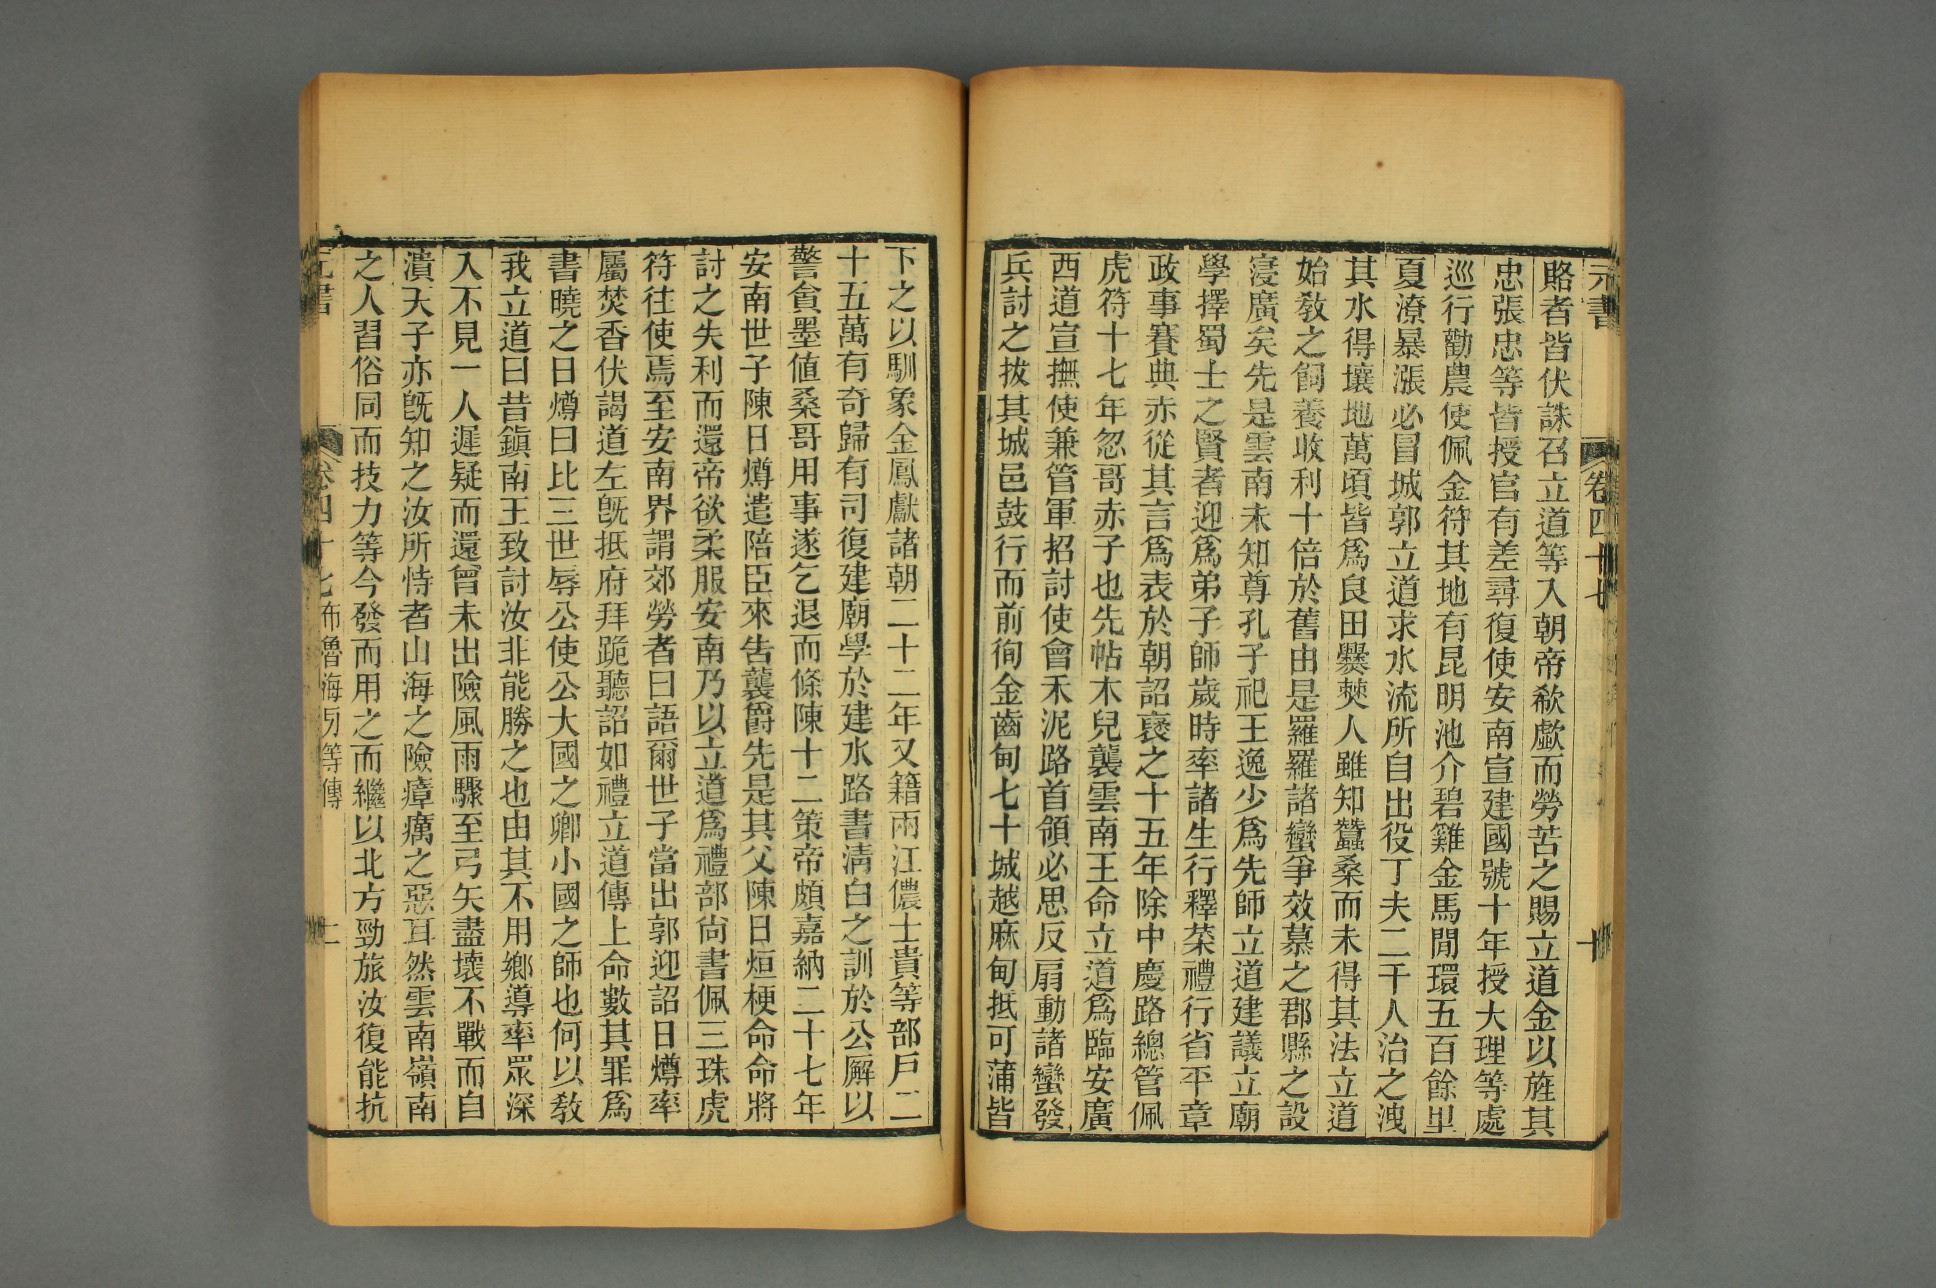 元書
卷四十七
十
賂者皆伏誅召立道等入朝帝欷歔而勞苦之賜立道金以旌其
忠張忠等皆授官有差尋復使安南宣建國號十年授大理等處
巡行勸農使佩金符其地有昆明池介碧雞金馬閒環五百餘里
夏潦暴漲必冒城郭立道求水流所自出役丁夫二千人治之洩
其水得壤地萬頃皆爲良田爨僰人雖知蠶桑而未得其法立道
始敎之飼養收利十倍於舊由是羅羅諸蠻爭效慕之郡縣之設
寖廣矣先是雲南未知尊孔子祀王逸少爲先師立道建議立廟
學擇蜀士之賢者迎爲弟子師歲時率諸生行釋菜禮行省平章
政事賽典赤從其言爲表於朝詔襃之十五年除中慶路總管佩
虎符十七年忽哥赤子也先帖木兒襲雲南王命立道爲臨安廣
西道宣撫使兼管軍招討使會禾泥路首領必思反扇動諸蠻發
兵討之拔其城邑鼓行而前徇金齒甸七十城越麻甸抵可蒲皆
下之以馴象金鳳獻諸朝二十二年又籍兩江儂士貴等部戶二
十五萬有奇歸有司復建廟學於建水路書淸白之訓於公廨以
警貪墨値桑哥用事遂乞退而條陳十二策帝頗嘉納二十七年
安南世子陳日燇遣陪臣來吿襲爵先是其父陳日烜梗命命將
討之失利而還帝欲柔服安南乃以立道爲禮部尙書佩三珠虎
符往使焉至安南界謂郊勞者曰語爾世子當出郭迎詔日燇率
屬焚香伏謁道左旣抵府拜跪聽詔如禮立道傳上命數其罪爲
書曉之日燇曰比三世辱公使公大國之卿小國之師也何以敎
我立道曰昔鎭南王致討汝非能勝之也由其不用鄕導率眾深
入不見一人遲疑而還曾未出險風雨驟至弓矢盡壞不戰而自
潰天子亦旣知之汝所恃者山海之險瘴癘之惡耳然雲南嶺南
之人習俗同而技力等今發而用之而繼以北方勁旅汝復能抗
元書
卷四十七
布魯海牙等傳